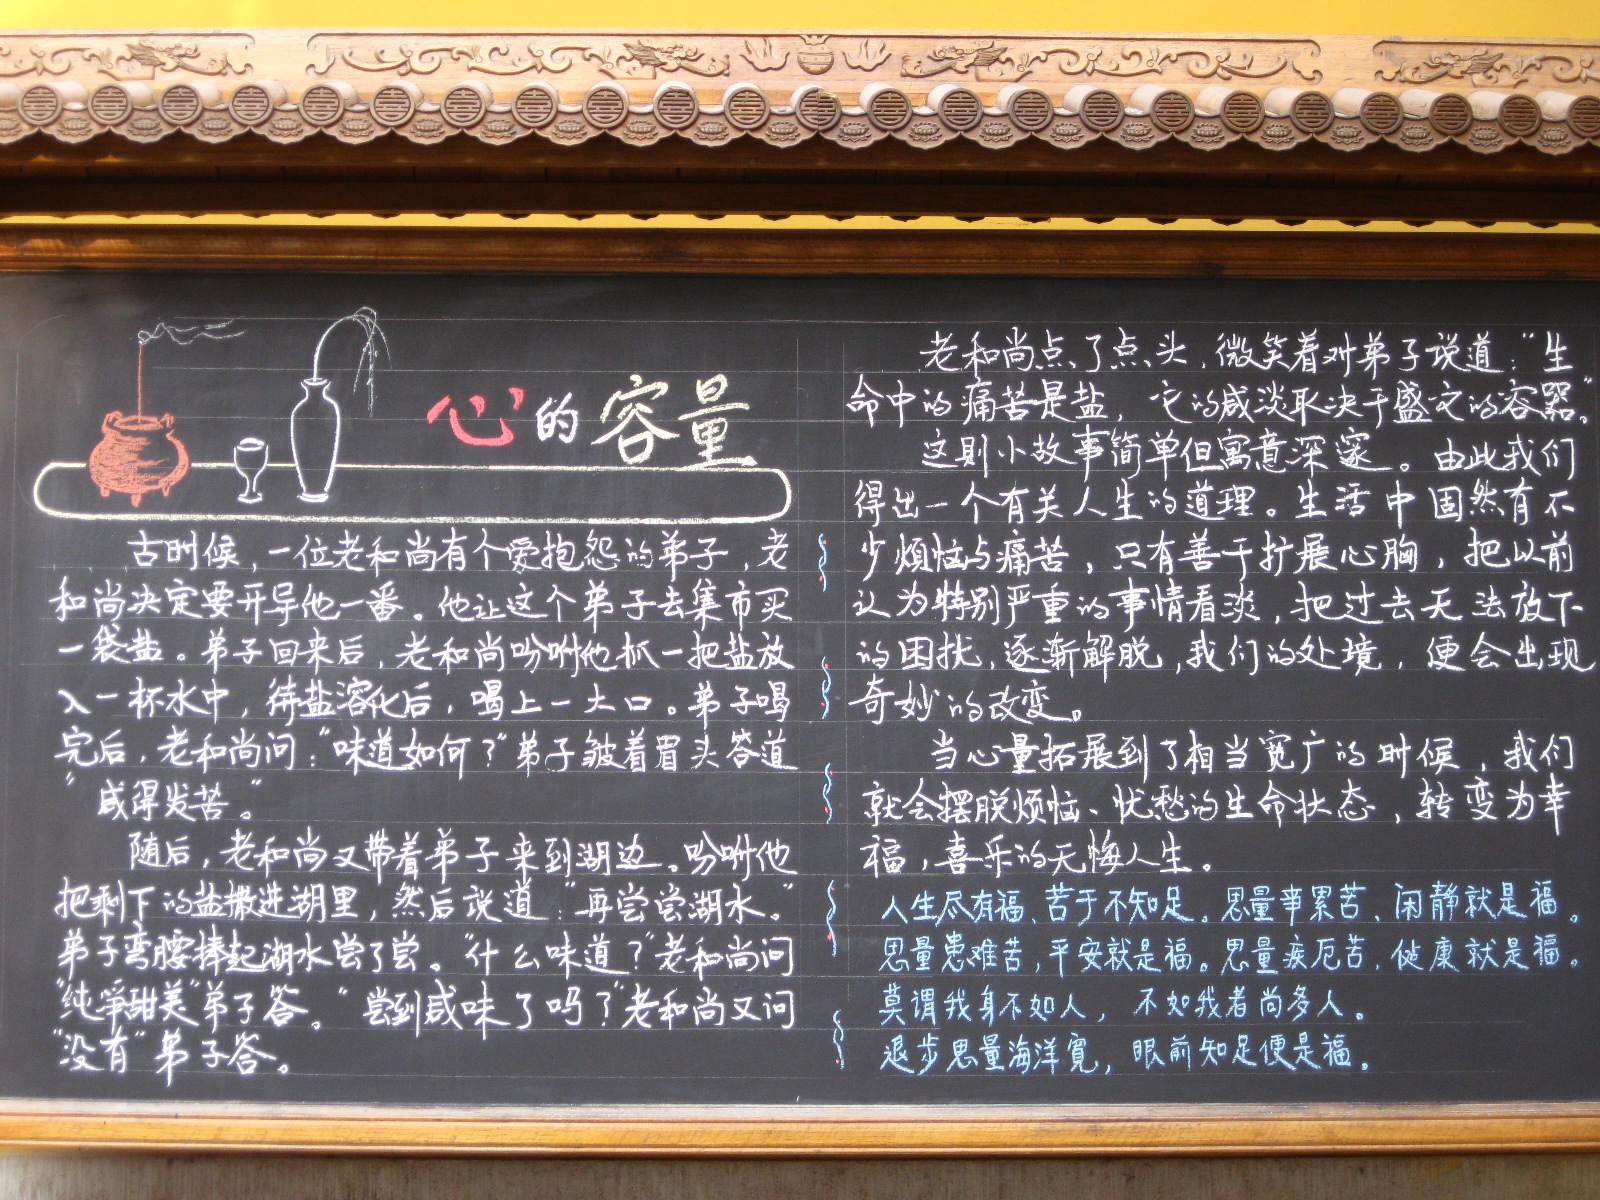 心的容量
古时候，一位老和尚有个爱抱怨的弟子，老
和尚决定要开导他一番。他让这个弟子去集市买
一袋盐。弟子回来后，老和尚吩咐他抓一把盐放
入一杯水中，待盐溶化后，喝上一大口。弟子喝
完后，老和尚问：“味道如何？”弟子皱着眉头答道
“咸得发苦。”
随后，老和尚又带着弟子来到湖边。吩咐他
把剩下的盐撒进湖里，然后说道：“再尝尝湖水。”
弟子弯腰捧起湖水尝了尝。“什么味道？”老和尚问
“纯净甜美”弟子答。“尝到咸味了吗？”老和尚又问
“没有”弟子答。
老和尚点了点头，微笑着对弟子说道：“生
命中的痛苦是盐，它的咸淡取决于盛它的容器。”
这则小故事简单但寓意深邃。由此我们
得出一个有关人生的道理。生活中固然有不
少烦恼与痛苦，只有善于扩展心胸，把以前
认为特别严重的事情看淡，把过去无法放下
的困扰，逐渐解脱，我们的处境，便会出现
奇妙的改变。
当心量拓展到了相当宽广的时候，我们
就会摆脱烦恼、忧愁的生命状态，转变为幸
福，喜乐的无悔人生。
人生尽有福、苦于不知足。思量事累苦、闲静就是福。
思量患难苦，平安就是福。思量疾厄苦，健康就是福。
莫谓我身不如人，不如我者尚多人。
退步思量海洋宽，眼前知足便是福。